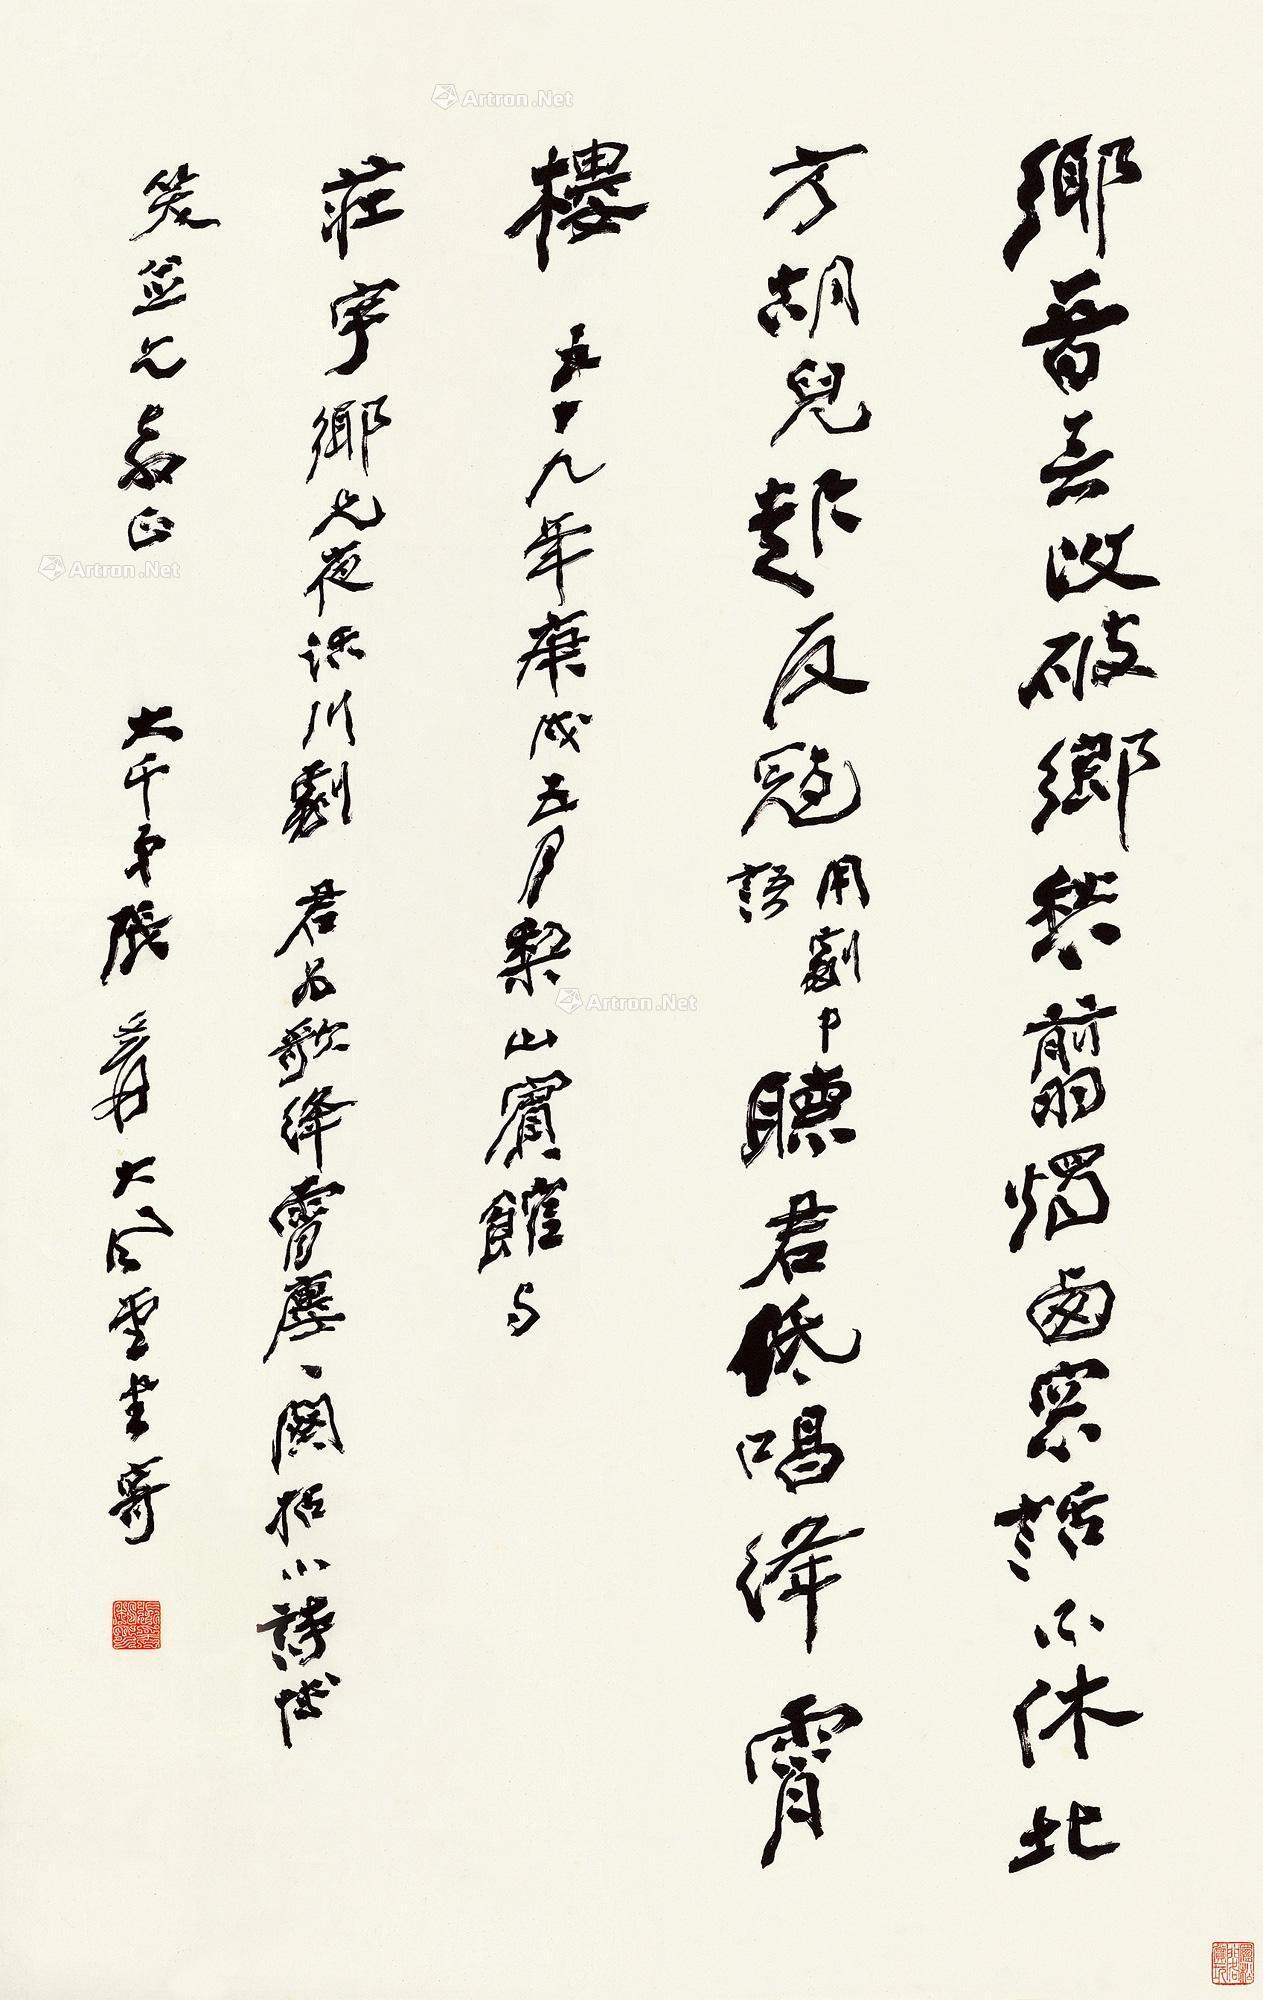 鄉音無改破鄉愁翦燭西窗話不休北
方胡兒起反寇用劇中語聽君低唱絳霄
樓 五十九年庚戌五月梨山賓館與
莊宇鄉兄夜談川劇 君為歌絳霄廔一闋拈小詩博
笑並乞教正 大千弟張爰大風堂書寄
Artron.Net
Artron.Net
Artron.Net